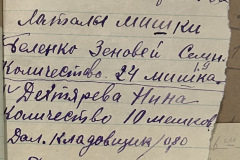 Латалы мишки
Беленко Зеновей Семён.
Количество. 24 мишка.
Дейтярева Нина
Количество 10 мешков.
Дал. Кладовщик